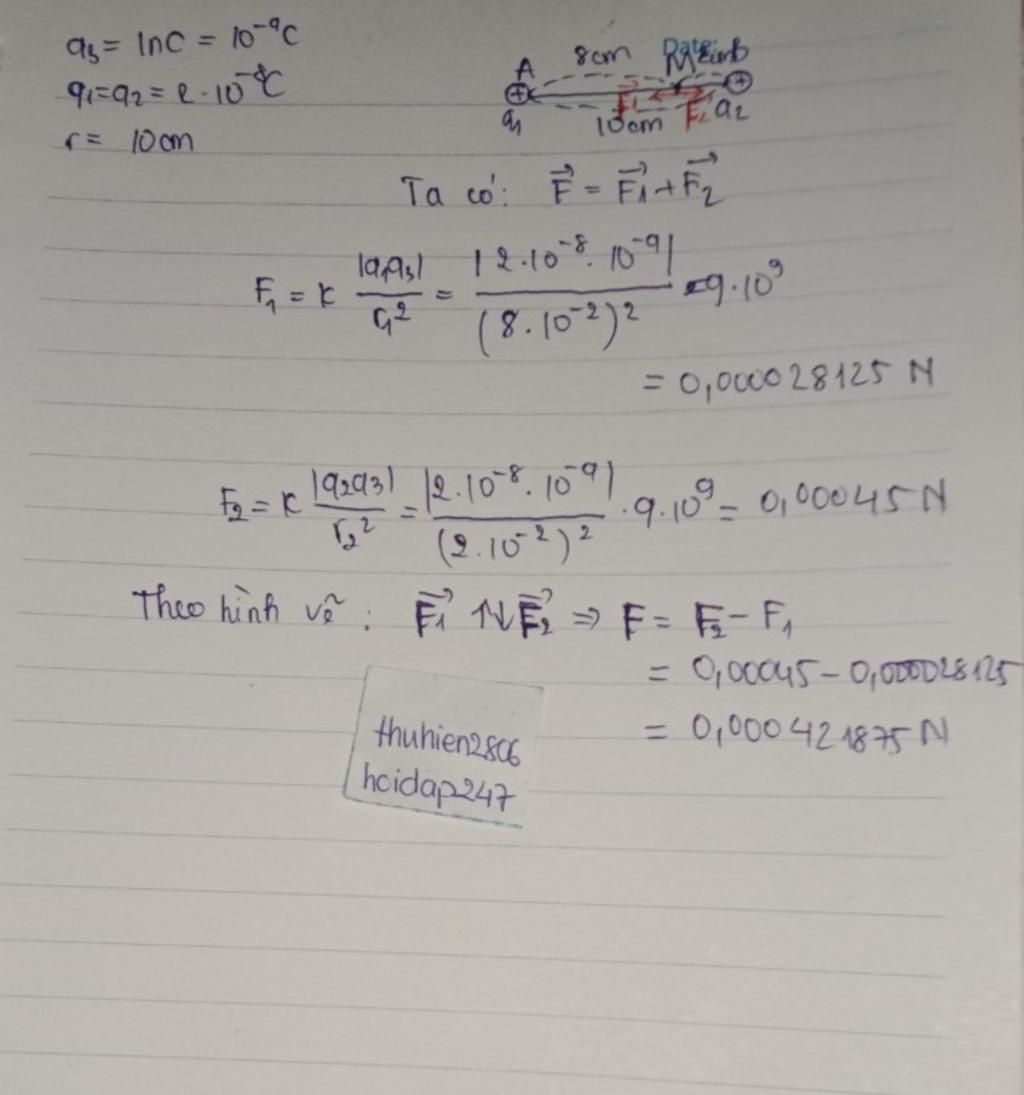 q₃ = 1nC = 10⁻⁹C
q₁=q₂ = 2·10⁻⁸C
r = 10cm
A 8cm
q₁ 10cm F₁ F₂ q₂
Ta có: F⃗ = F₁⃗ + F₂⃗
F₁ = K |q₁q₃| / r₁² = |2·10⁻⁸·10⁻⁹| / (8·10⁻²)² ·9·10⁹
= 0,000028125 N
F₂ = K |q₂q₃| / r₂² = |2·10⁻⁸·10⁻⁹| / (2·10⁻²)² ·9·10⁹ = 0,00045 N
Theo hình vẽ: F₁⃗ ↑↓ F₂⃗ ⇒ F = F₂ - F₁
= 0,00045 - 0,000028125
= 0,000421875 N
thuhien2806
hoidap247